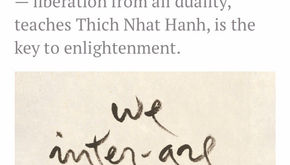 — liberation from all duality,
teaches Thich Nhat Hanh, is the
key to enlightenment.
we
inter-are